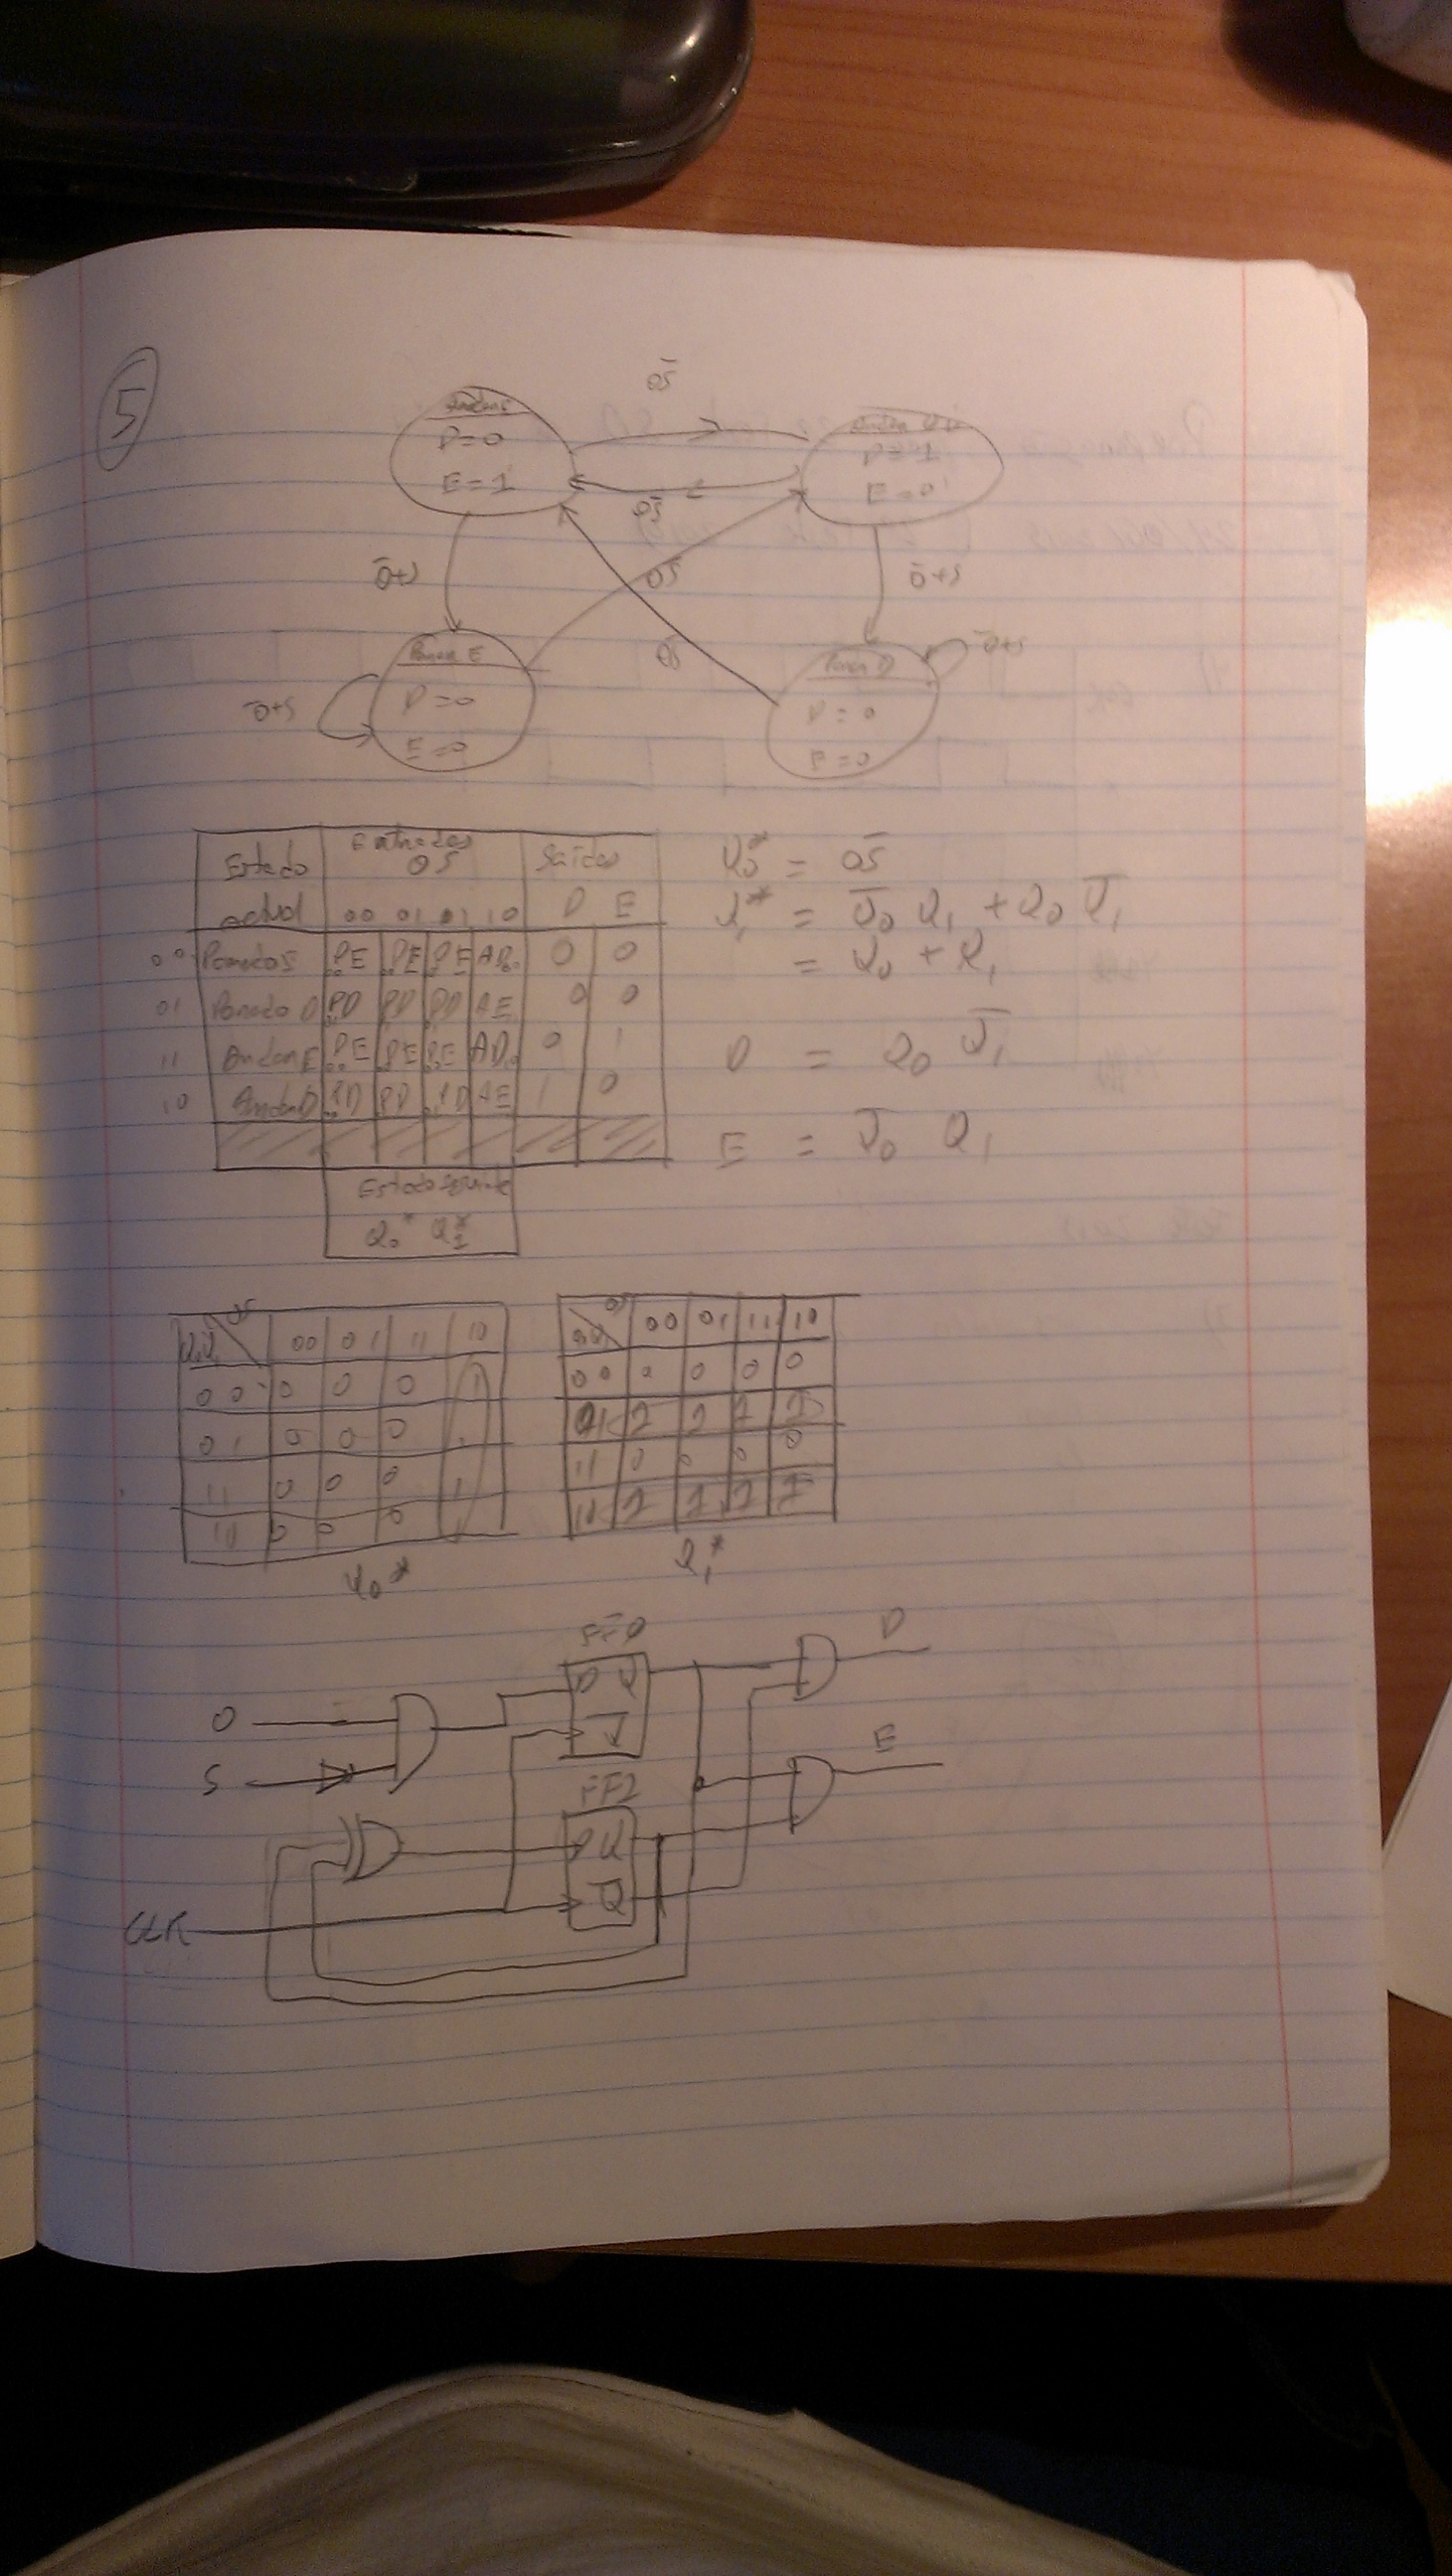 5
OS̄
D=0
E=1
D=1
E=0
OS̄
Ō+S
OS̄
Ō+S
Parar E
OS̄
Ō+S
Ō+S
D=0
E=0
D=0
E=0
Estado actual Entradas OS Saídas
00 01 11 10 D E
00 PE PE PE AD 0 0
01 Parado D PD PD PD AE 0 0
11 Andar E PE PE PE AD 0 1
10 Andar D PD PD PD AE 1 0
Estado seguinte
Q₀* Q₁*
Q₀* = OS̄
Q₁* = Q̄₀ Q₁ + Q₀ Q̄₁
= Q₀ + Q₁
D = Q₀ Q̄₁
E = Q̄₀ Q₁
Q₀Q₁ OS 00 01 11 10
00 0 0 0 1
01 0 0 0 1
11 0 0 0 1
10 0 0 0 1
Q₀*
Q₀Q₁ OS 00 01 11 10
00 0 0 0 0
01 1 1 1 1
11 0 0 0 0
10 1 1 1 1
Q₁*
FF0
D Q
Q̄
D
O
S
E
FF1
D Q
Q̄
CLK